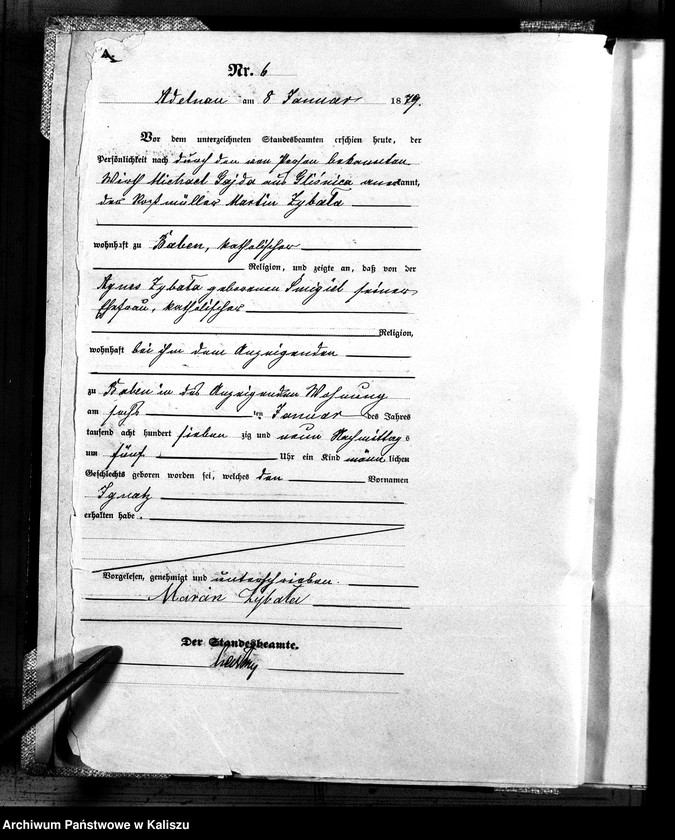 A.
Nr. 6
Adelnau am 8 Januar 1879.
Vor dem unterzeichneten Standesbeamten erschien heute, der
Persönlichkeit nach durch den von Person bekannten
Wirth Michael Gajda aus Gliśnica anerkannt,
der Roßmüller Martin Zybała
wohnhaft zu Raben, katholischer
Religion, und zeigte an, daß von der
Agnes Zybała geborenen Śmigiel seiner
Ehefrau, katholischer
Religion,
wohnhaft bei ihm dem Anzeigenden
zu Raben in des Anzeigenden Wohnung
am sechs ten Januar des Jahres
tausend acht hundert sieben zig und neun Nachmittags
um fünf Uhr ein Kind männlichen
Geschlechts geboren worden sei, welches den Vornamen
Ignatz
erhalten habe.
Vorgelesen, genehmigt und unterschrieben.
Marcin Zybała
Der Standesbeamte.
Archiwum Państwowe w Kaliszu